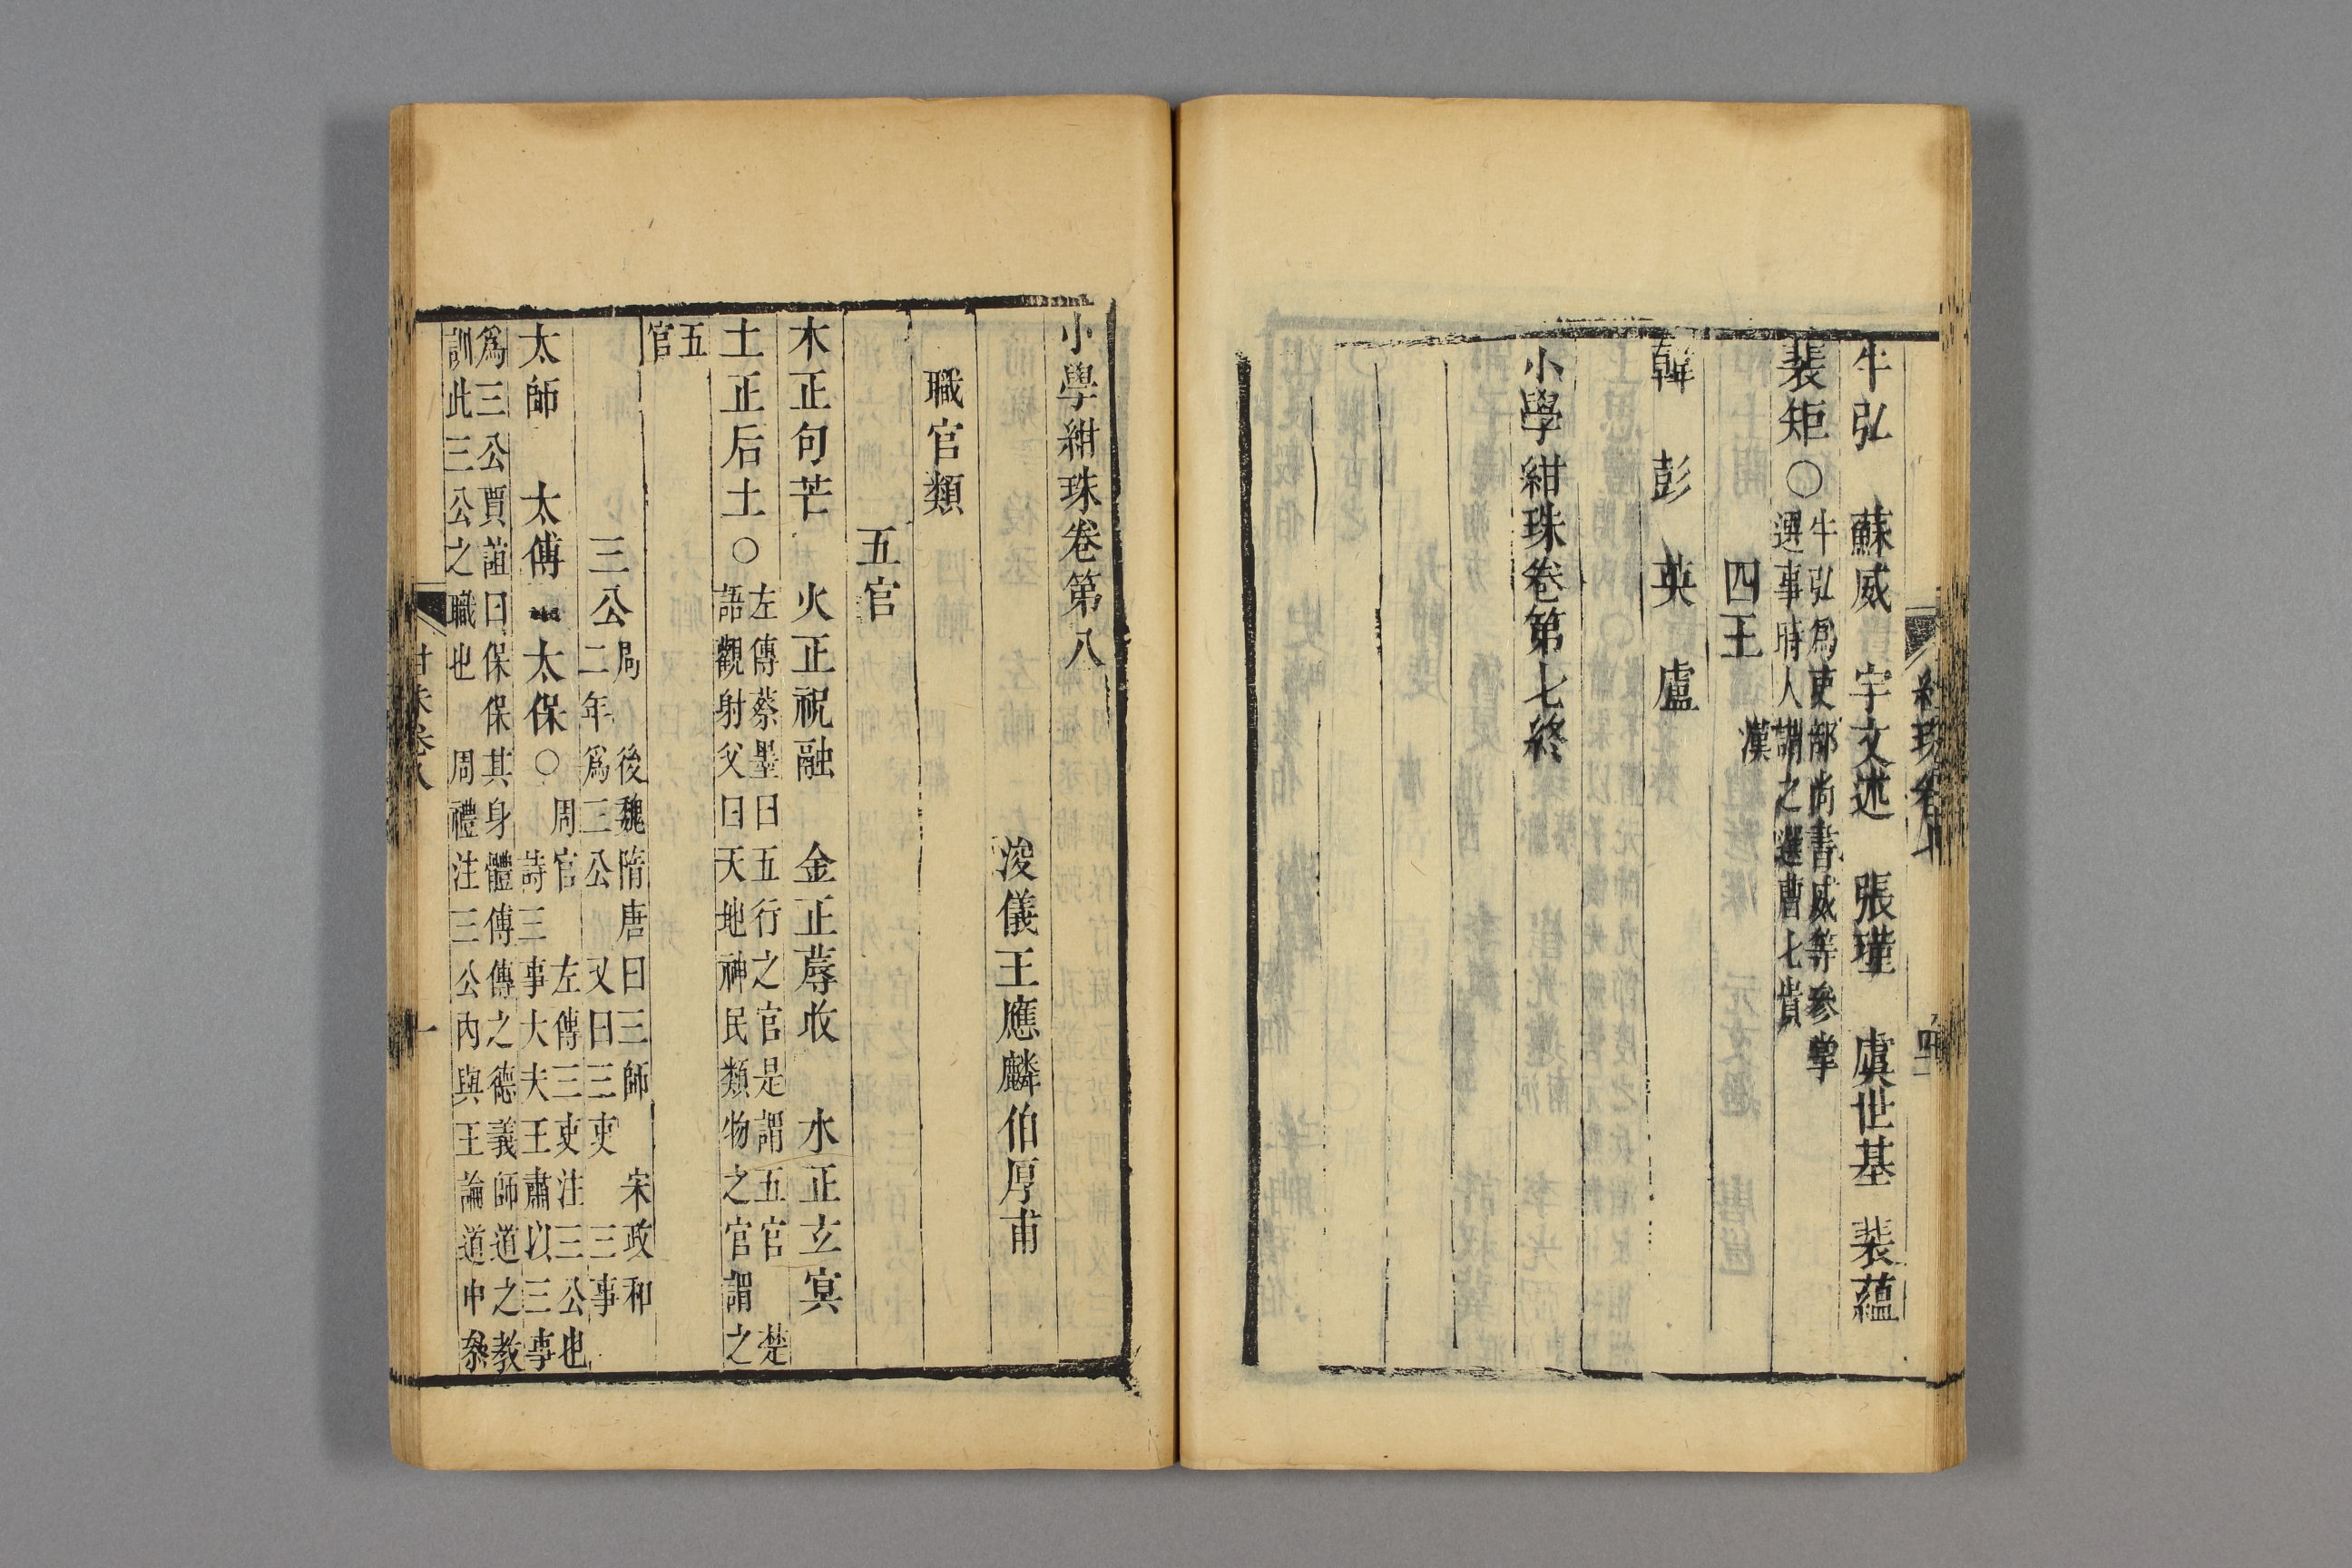 牛弘　蘇威　宇文述　張瑾　虞世基　裴蘊
裴矩○牛弘爲吏部尚書威等參掌
選事時人謂之選曹七貴
四王漢
韓　彭　英　盧
小學紺珠卷第七終
小學紺珠卷第八
浚儀王應麟伯厚甫
職官類
五官
木正句芒　火正祝融　金正蓐收　水正玄冥
土正后土○左傳蔡墨曰五行之官是謂五官　楚
語觀射父曰天地神民類物之官謂之
五
官
三公周　後魏隋唐曰三師　宋政和
二年爲三公　又曰三吏　三事
太師　太傅　太保○周官　左傳三吏注三公也
詩三事大夫王肅以三事
爲三公賈誼曰保保其身體傅傅之德義師道之教
訓此三公之職也　周禮注三公內與王論道中參